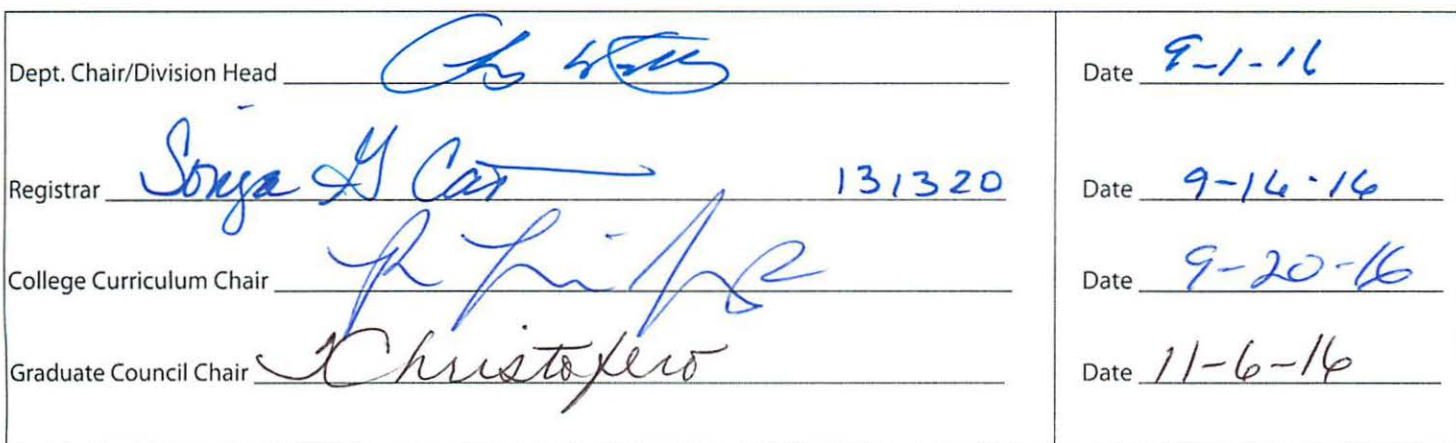 Dept. Chair/Division Head Date 9-1-16
Registrar Sonja G Cas 131320 Date 9-16-16
College Curriculum Chair Date 9-20-16
Graduate Council Chair Christofero Date 11-6-16